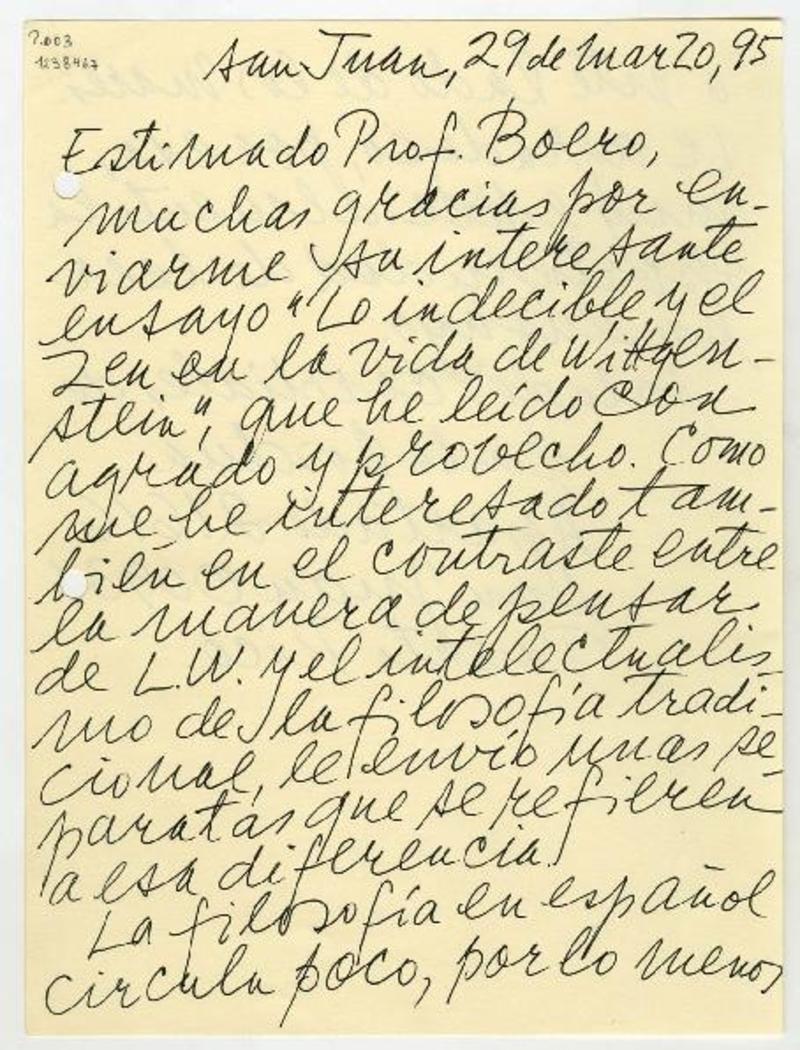 P.003
1238467
San Juan, 29 de marzo, 95
Estimado Prof. Boero,
muchas gracias por en-
viarme su interesante
ensayo "Lo indecible y el
Zen en la vida de Wittgen-
stein", que he leído con
agrado y provecho. Como
me he interesado tam-
bién en el contraste entre
la manera de pensar
de L.W. y el intelectualis-
mo de la filosofía tradi-
cional, le envío unas se-
paratas que se refieren
a esa diferencia.
La filosofía en español
circula poco, por lo menos